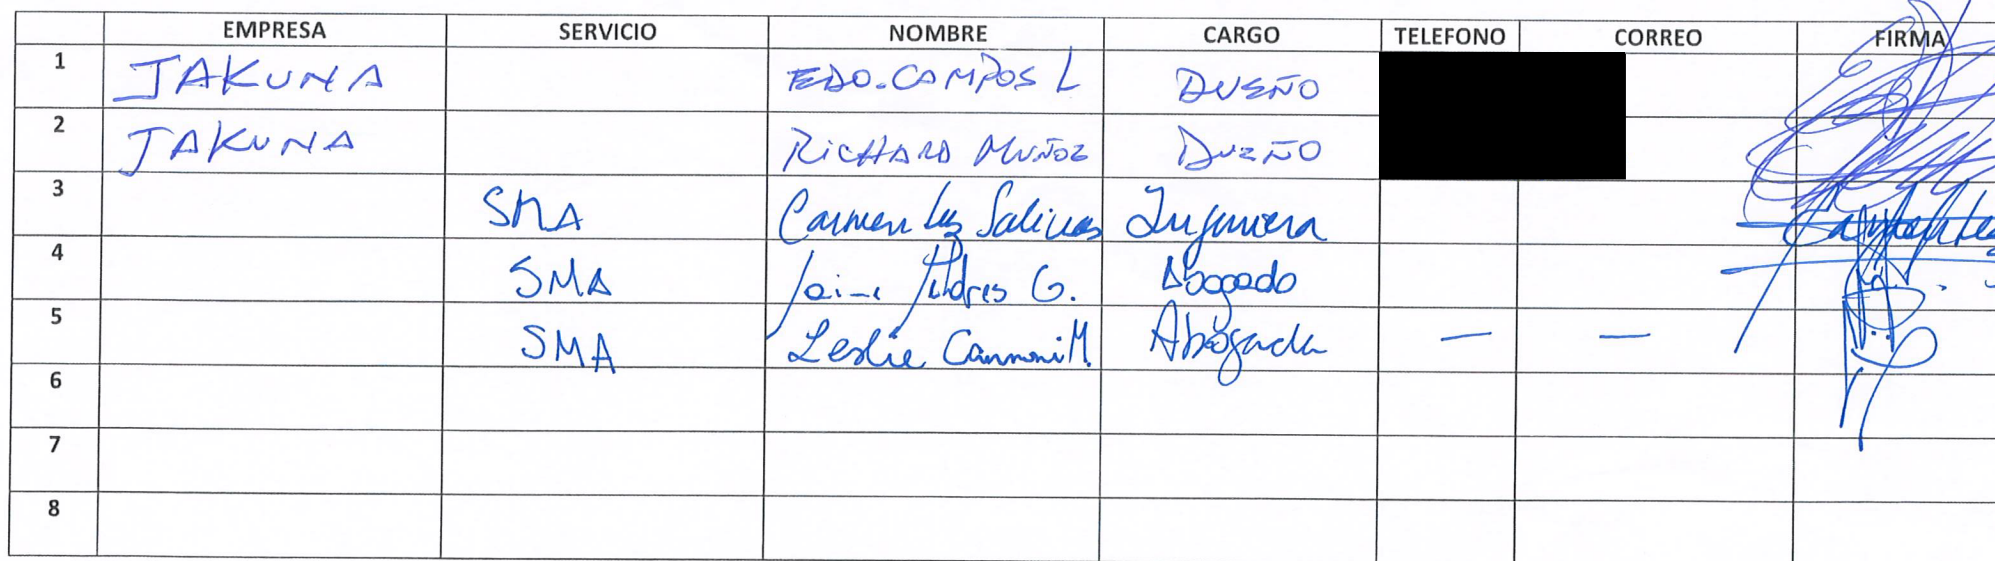 EMPRESA SERVICIO NOMBRE CARGO TELEFONO CORREO FIRMA
1 JAKUNA EDO. CAMPOS L DUEÑO
2 JAKUNA RICHARD MUÑOZ DUEÑO
3 SMA Carmen Luz Salinas Ingeniera
4 SMA Jaime G. Abogado
5 SMA Leslie Cannoni M. Abogada — —
6
7
8